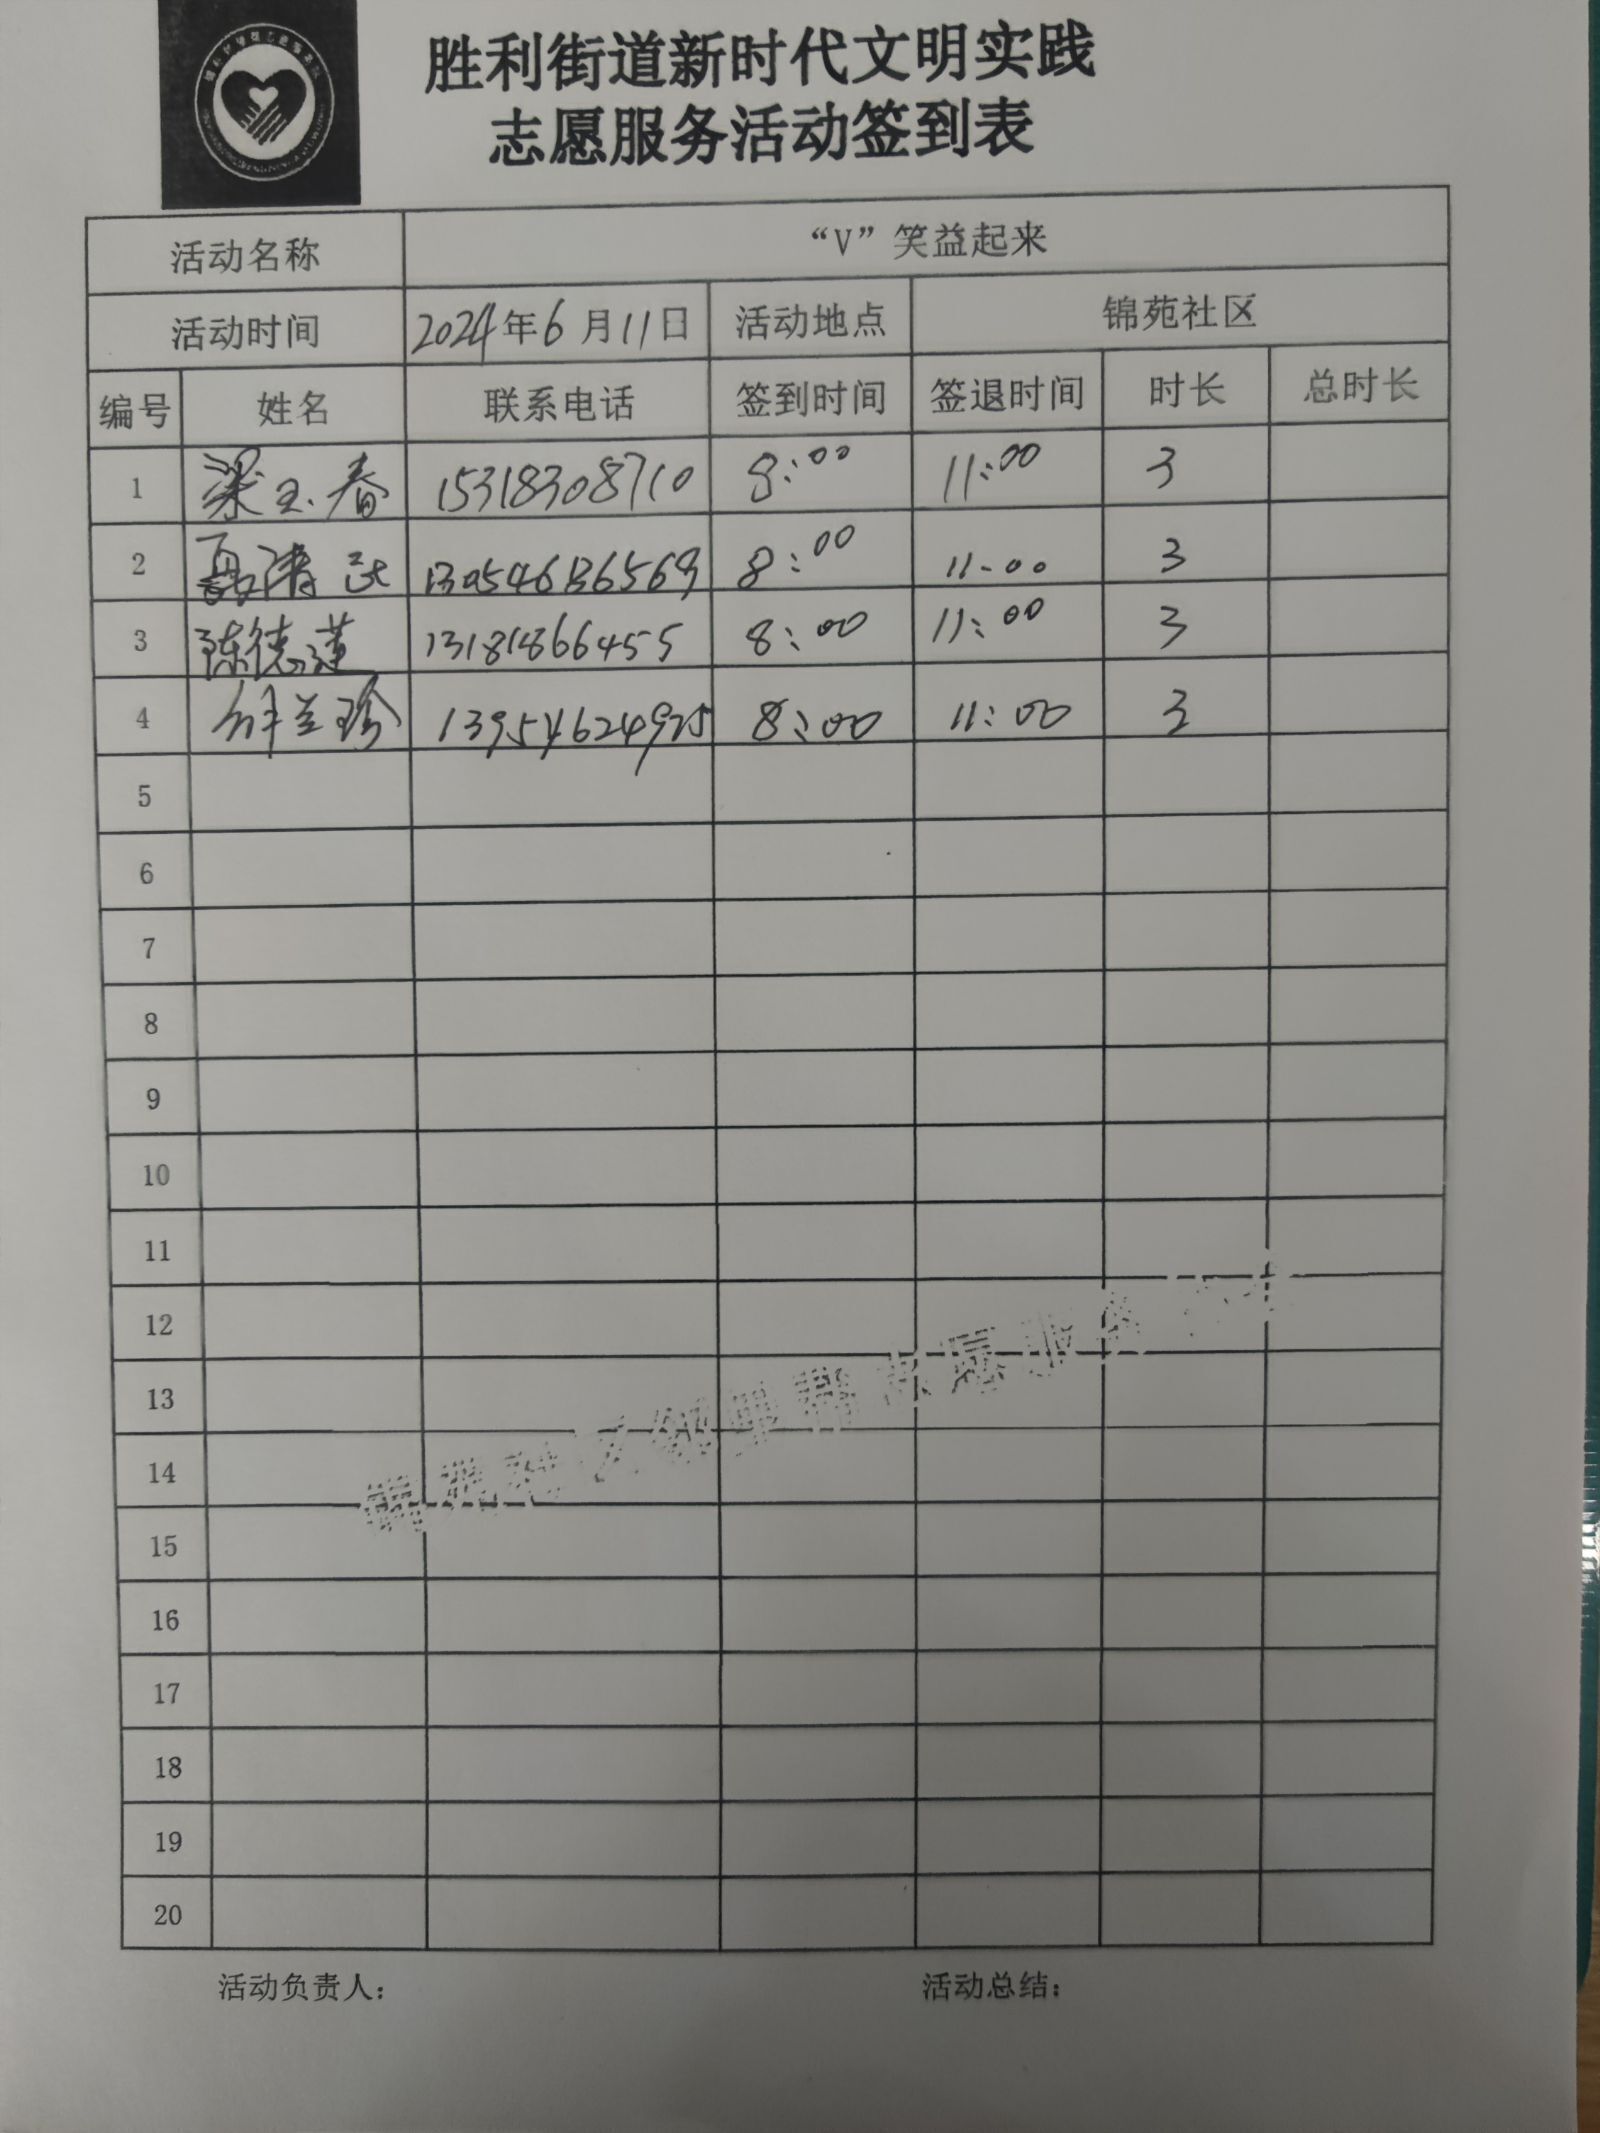 胜利街道新时代文明实践
志愿服务活动签到表
活动名称 “V”笑益起来
活动时间 2024年6月11日 活动地点 锦苑社区
编号 姓名 联系电话 签到时间 签退时间 时长 总时长
1 梁玉春 15318308710 8:00 11:00 3
2 聂清 8:00 11-00 3
3 陈德莲 13181866455 8:00 11:00 3
4 兰珍 13954624925 8:00 11:00 3
5
6
7
8
9
10
11
12
13
14
15
16
17
18
19
20
锦苑社区邻里帮志愿服务
活动负责人： 活动总结：